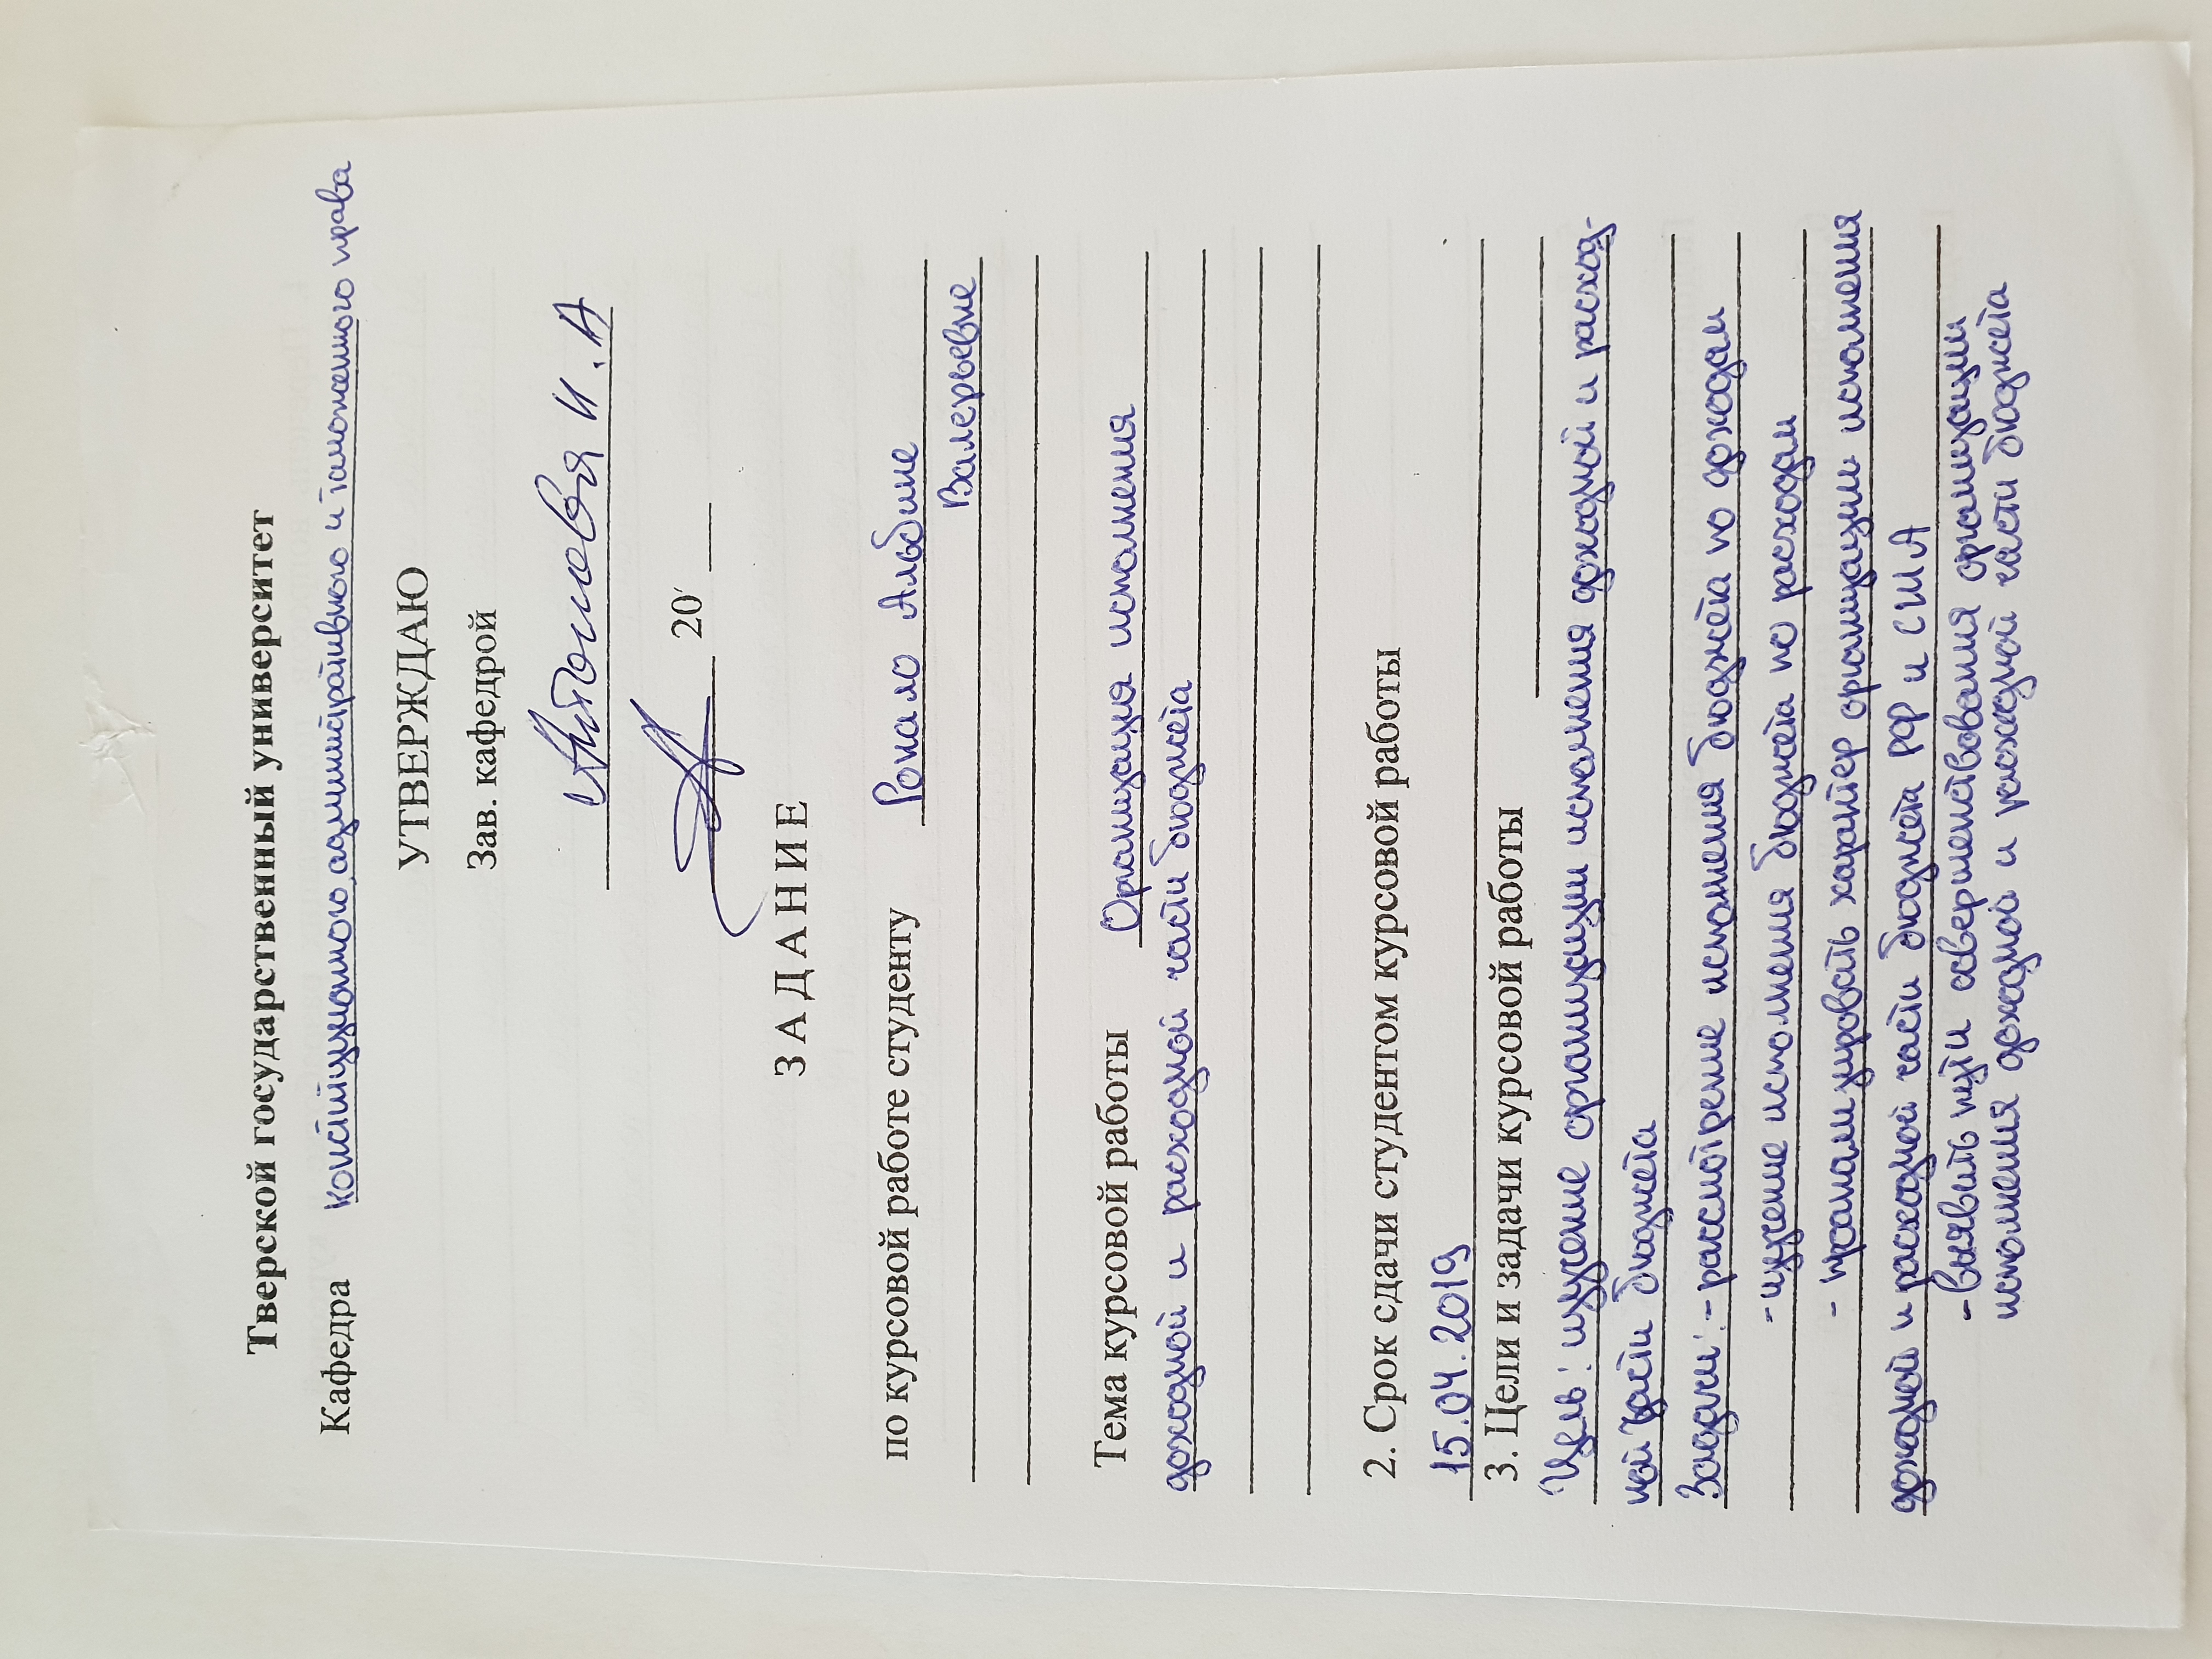 Тверской государственный университет
Кафедра конституционного, административного и таможенного права
УТВЕРЖДАЮ
Зав. кафедрой
Антонова Н.А
20
ЗАДАНИЕ
по курсовой работе студенту Ропало Альбине
Валерьевне
Тема курсовой работы Организация исполнения
доходной и расходной части бюджета
2. Срок сдачи студентом курсовой работы
15.04.2019
3. Цели и задачи курсовой работы
Цель: изучение организации исполнения доходной и расход-
ной части бюджета
Задачи: - рассмотрение исполнения бюджета по доходам
- изучение исполнения бюджета по расходам
- проанализировать характер организации исполнения
доходной и расходной части бюджета РФ и США
- выявить пути совершенствования организации
исполнения доходной и расходной части бюджета